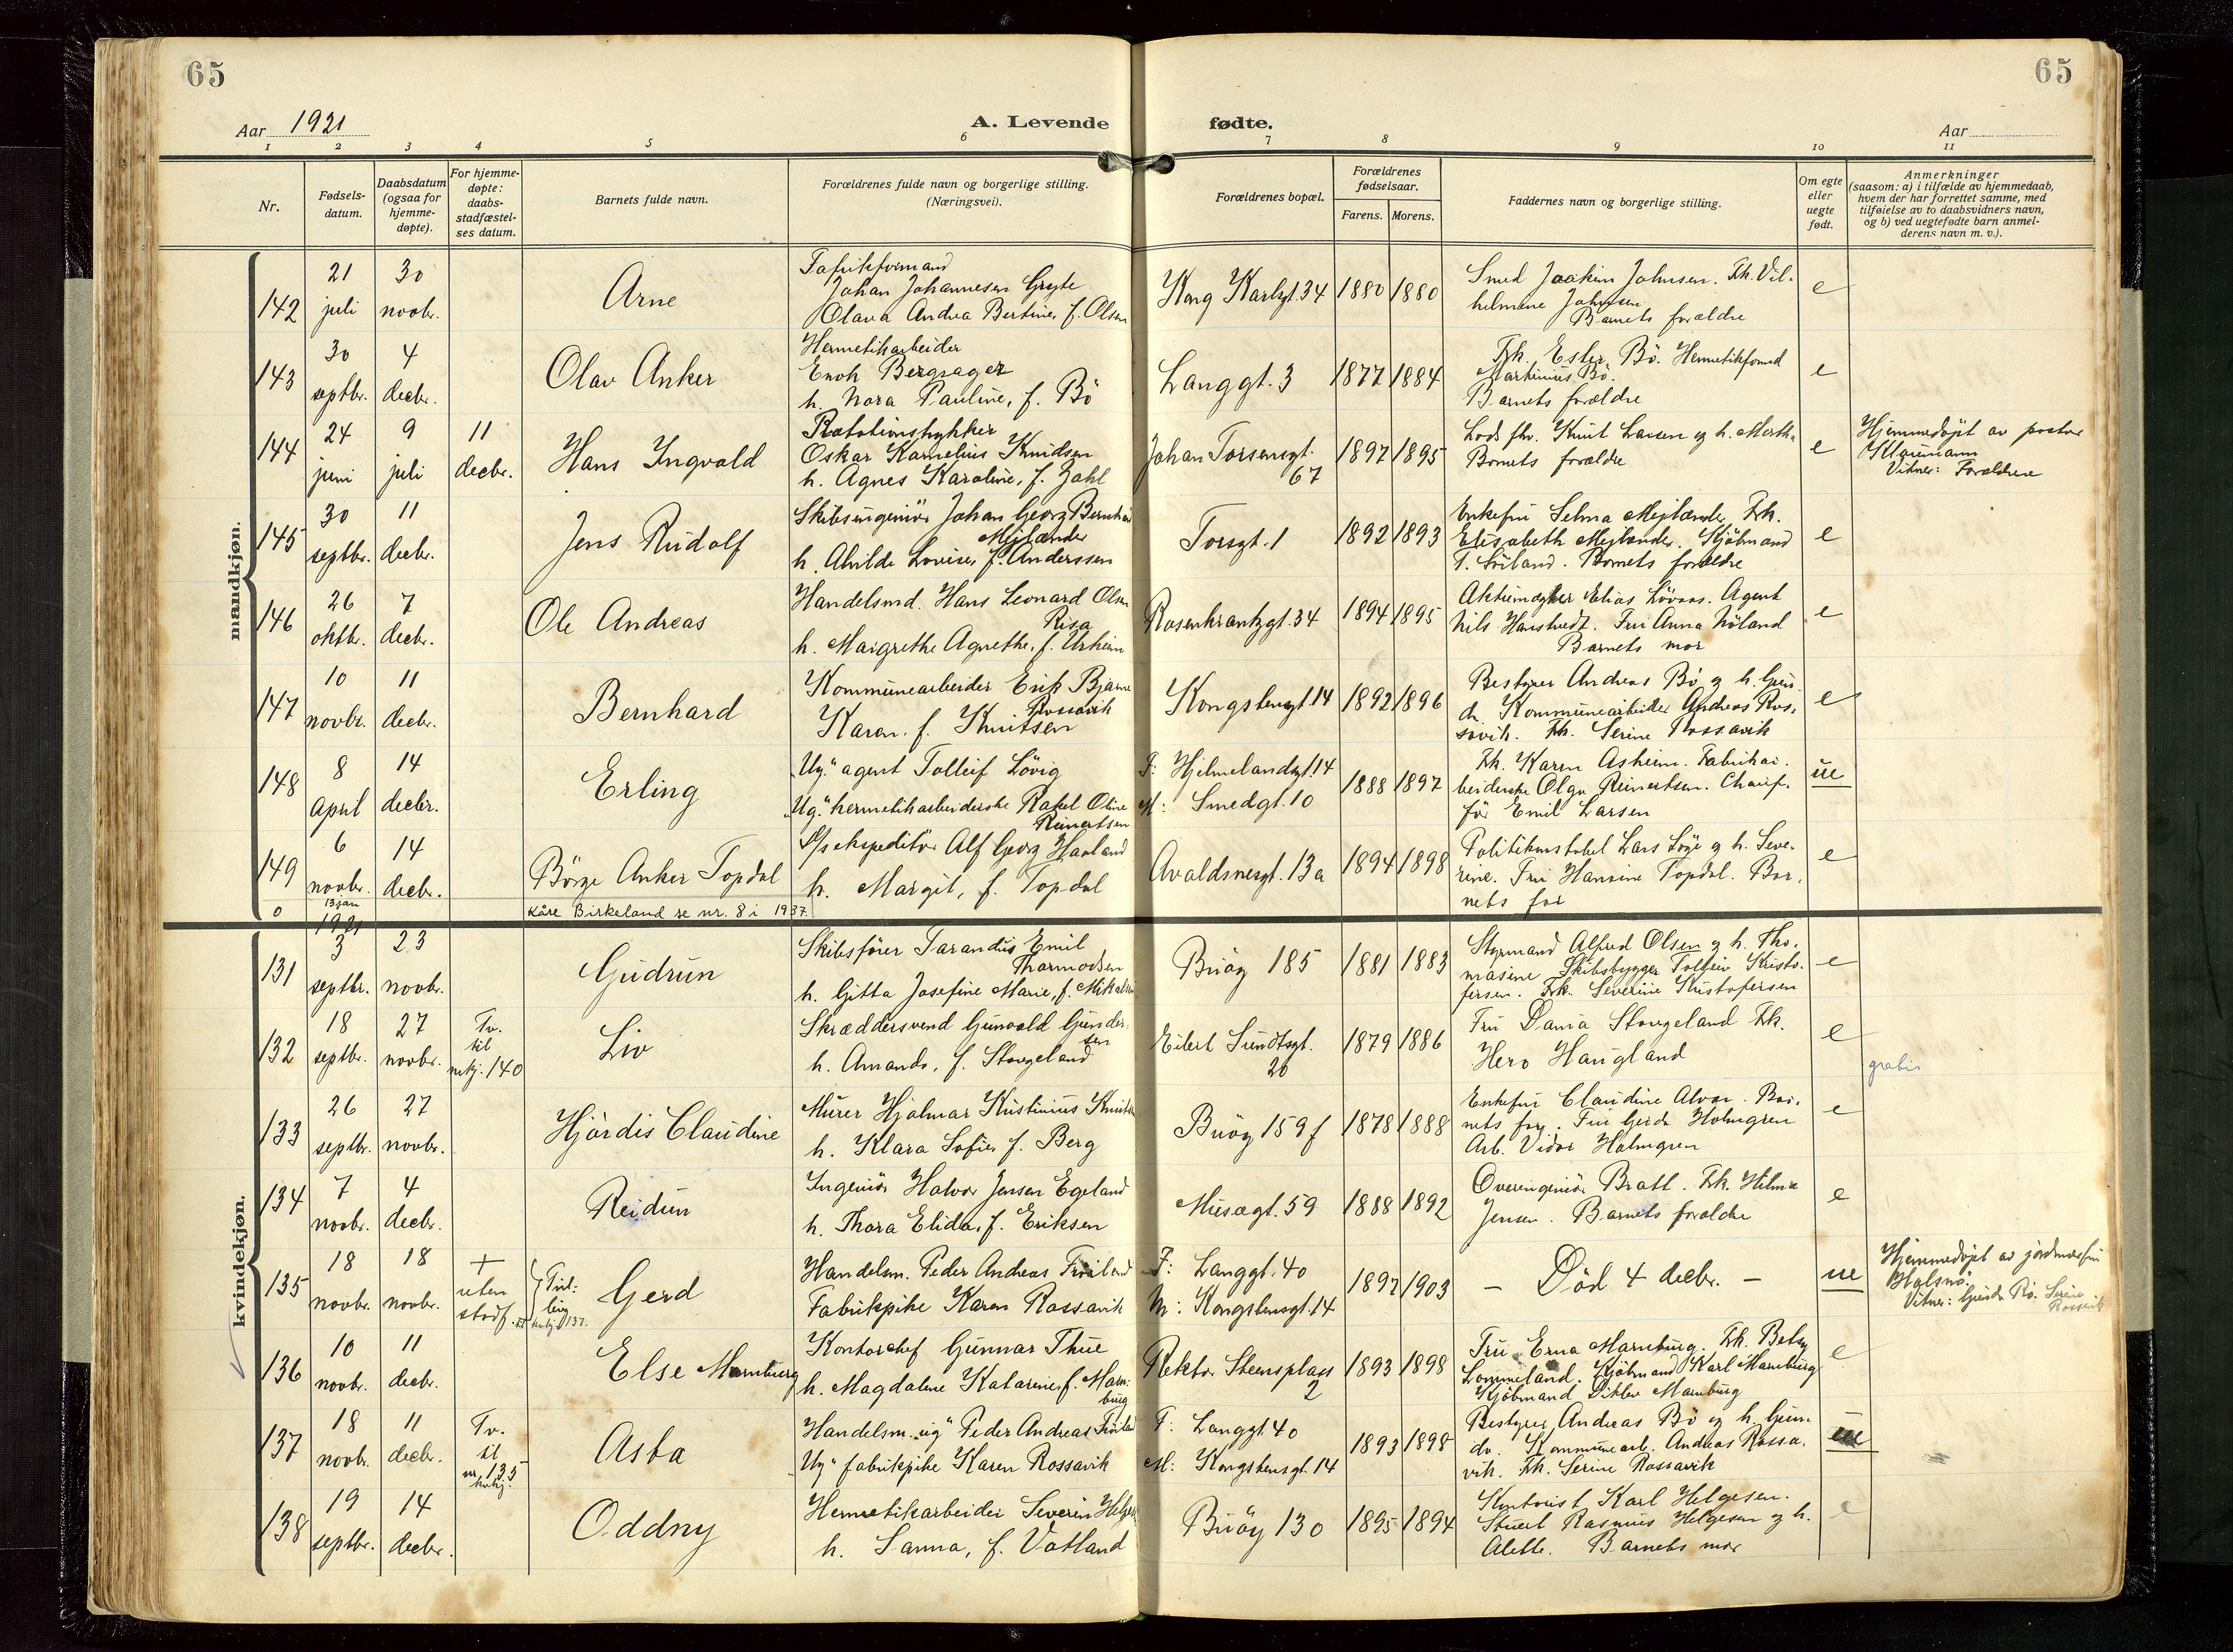 65
65
Aar 1921
A. Levende fødte.
Aar
1 2 3 4 5 6 7 8 9 10 11
Nr.
Fødsels-
datum.
Daabsdatum
(ogsaa for
hjemme-
døpte).
For hjemme-
døpte:
daabs-
stadfæstel-
ses datum.
Barnets fulde navn.
Forældrenes fulde navn og borgerlige stilling.
(Næringsvei).
Forældrenes bopæl.
Forældrenes
fødselsaar.
Farens. Morens.
Faddernes navn og borgerlige stilling.
Om egte
eller
uegte
født.
Anmerkninger
(saasom: a) i tilfælde av hjemmedaab,
hvem der har forrettet samme, med
tilføielse av to daabsvidners navn,
og b) ved uegtefødte barn anmel-
derens navn m. v.).
mandkjøn.
142
21
juli
30
novbr.
Arne
Fabrikformand
Johan Johannesen Gryte
Olava Andrea Bertine, f. Olsen
Kong Karlsgt. 34
1880 1880
Smed Joakim Johnsen. Frk. Vil-
helmine Johnsen
Barnets forældre
e
143
30
septbr.
4
decbr.
Olav Anker
Hermetikarbeider
Enok Bergsager
h. Nora Pauline, f. Bö
Langgt. 3
1877 1884
Frk. Ester Bö. Hermetikformd
Martinius Bö.
Barnets forældre
e
144
24
juni
9
juli
11
decbr.
Hans Ingvald
Rotationstrykker
Oskar Kornelius Knudsen
h. Agnes Karoline, f. Zahl
Johan Torsensgt.
67
1897 1895
Lods fhv. Knut Larsen og h. Martha
Barnets forældre
e
Hjemmedöpt av pastor
Vitner: Forældrene
145
30
septbr.
11
decbr.
Jens Rudolf
Skibsingeniör Johan Georg Bernhard
Mejlænder
h. Alvilde Lovise, f. Anderssen
Torsgt. 1
1892 1893
Enkefru Selma Mejlænder, Frk.
Elisabeth Mejlænder. Kjöbmand
Barnets forældre
e
146
26
oktbr.
7
decbr.
Ole Andreas
Handelsmd. Hans Leonard Olsen
Risa
h. Margrethe Agnethe, f. Urheim
Rosenkrantzgt. 34
1894 1895
Elias Lövaas. Agent
Nils Hanstvedt. Fru Anna Nöland
Barnets mor
e
147
10
novbr.
11
decbr.
Bernhard
Kommunearbeider Erik Bjarne
Rossavik
Karen f. Knutsen
Kongstensgt. 14
1892 1896
Bestyrer Andreas Bö og h. Gun-
da. Kommunearbeider Andreas Ros-
savik. Frk. Serine Rossavik
e
148
8
April
14
decbr.
Erling
"Ug." agent Tolleif Lövig
"Ug." hermetikarbeiderske Rakel Oline
Reinertsen
F: Hjelmelandsgt. 14
M: Smedgt. 10
1888 1897
Frk. Karen Asheim. Fabrikar-
beiderske Olga Reinertsen. Chauf-
för Emil Larsen
ue
149
6
novbr.
14
decbr.
Börge Anker Topdal
S/s ekspeditör Alf Georg Haaland
h. Margit, f. Topdal
Avaldsnesgt. 13a
1894 1898
Politikonstabel Lars Söge og h. Seve-
rine. Fru Hansine Topdal. Bar-
nets far
e
0
13 jan
1921
Kåre Birkeland se nr. 8 i 1937.
kvindekjøn.
131
3
septbr.
23
novbr.
Gudrun
Skibsförer Tarandus Emil
Thormodsen
h. Gitta Josefine Marie, f. Mikalsen
Buöy 185
1881 1883
Styrmand Alfred Olsen og h. Tho-
masine Skibsbygger Tolleiv Kristo-
fersen. Frk. Severine Kristofersen
e
132
18
septbr.
27
novbr.
Tv.
til
mkj. 140
Liv
Skræddersvend Gunvald Gunder-
sen
h. Amanda, f. Stangeland
Eilert Sundtsgt.
20
1879 1886
Fru Dania Stangeland Frk.
Hero Haugland
e
gratis
133
26
septbr.
27
novbr.
Hjördis Claudine
Murer Hjalmar Kristinius Knutsen
h. Klara Sofie, f. Berg
Buöy 159 f
1878 1888
Enkefru Claudine Alvær. Bar-
nets far. Fru Gerda Holmgren
Arb. Vidar Holmgren
e
134
7
novbr.
4
decbr.
Reidun
Ingeniör Halvor Jensen Egeland
h. Thora Elida, f. Eriksen
Musægt. 59
1888 1892
Overingeniör Bratt. Frk. Hilma
Jensen. Barnets forældre
e
135
18
novbr.
18
novbr.
+
uten
stadf.
Tvil-
ling
til kvkj. 137.
Gerd
Handelsm. Peder Andreas Fröiland
Fabrikpike Karen Rossavik
F: Langgt. 40
M: Kongstensgt. 14
1897 1903
– Död 4 decbr. –
ue
Hjemmedöpt av jordmorfru
Halsnö.
Vitner: Gunda Bö. Serine
Rossavik
136
10
novbr.
11
decbr.
Else Marnburg
Kontorchef Gunnar Thue
h. Magdalene Katarine, f. Marn-
burg
Rektor Steensplass
2
1893 1898
Fru Erna Marnburg. Frk. Betsy
Lommeland. Kjöbmand Karl Marnburg
Kjöbmand Ditlev Marnburg
e
137
18
novbr.
11
decbr.
Tv.
til
nr. 135
kvkj.
Asta
Handelsm. "ug" Peder Andreas Fröiland
"Ug" fabrikpike Karen Rossavik
F: Langgt. 40
M: Kongstensgt. 14
1893 1898
Bestyrer Andreas Bö og h. Gun-
da. Kommunearb. Andreas Rossa-
vik. Frk. Serine Rossavik
ue
138
19
septbr.
14
decbr.
Oddny
Hermetikarbeider Severin Helgesen
h. Sanna, f. Vatland
Buöy 130
1895 1894
Kontorist Karl Helgesen.
Stuert Rasmus Helgesen og h.
Alette. Barnets mor
e